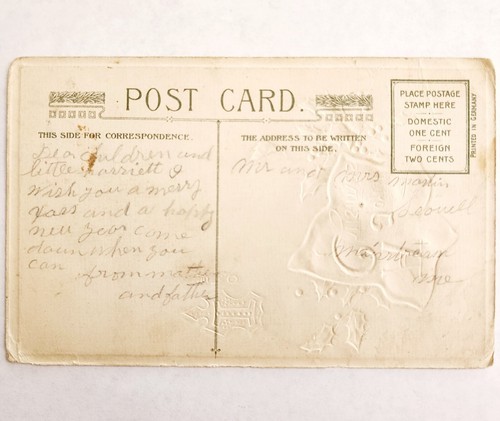 POST CARD.
THIS SIDE FOR CORRESPONDENCE.
THE ADDRESS TO BE WRITTEN
ON THIS SIDE.
PLACE POSTAGE
STAMP HERE
DOMESTIC
ONE CENT
FOREIGN
TWO CENTS
PRINTED IN GERMANY
Dear children and
little Harriett I
wish you a merry
Xmas and a happy
new year come
down when you
can
from mother
and father
Mr and Mrs